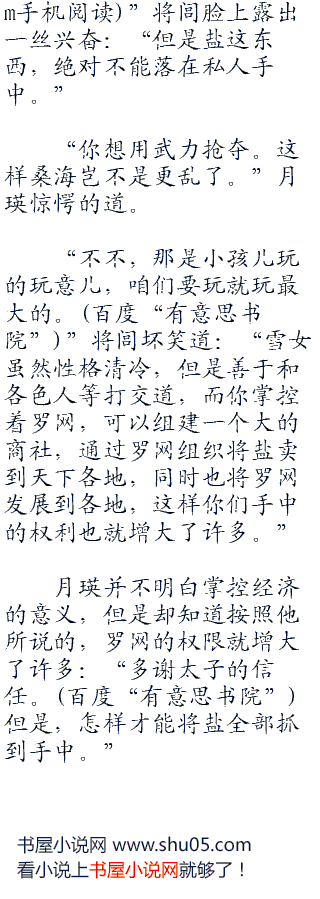 m手机阅读)”将闾脸上露出
一丝兴奋：“但是盐这东
西，绝对不能落在私人手
中。”
“你想用武力抢夺。这
样桑海岂不是更乱了。”月
瑛惊愕的道。
“不不，那是小孩儿玩
的玩意儿，咱们要玩就玩最
大的。(百度“有意思书
院”)”将闾坏笑道：“雪女
虽然性格清冷，但是善于和
各色人等打交道，而你掌控
着罗网，可以组建一个大的
商社，通过罗网组织将盐卖
到天下各地，同时也将罗网
发展到各地，这样你们手中
的权利也就增大了许多。”
月瑛并不明白掌控经济
的意义，但是却知道按照他
所说的，罗网的权限就增大
了许多：“多谢太子的信
任。(百度“有意思书院”)
但是，怎样才能将盐全部抓
到手中。”
书屋小说网 www.shu05.com
看小说上书屋小说网就够了！